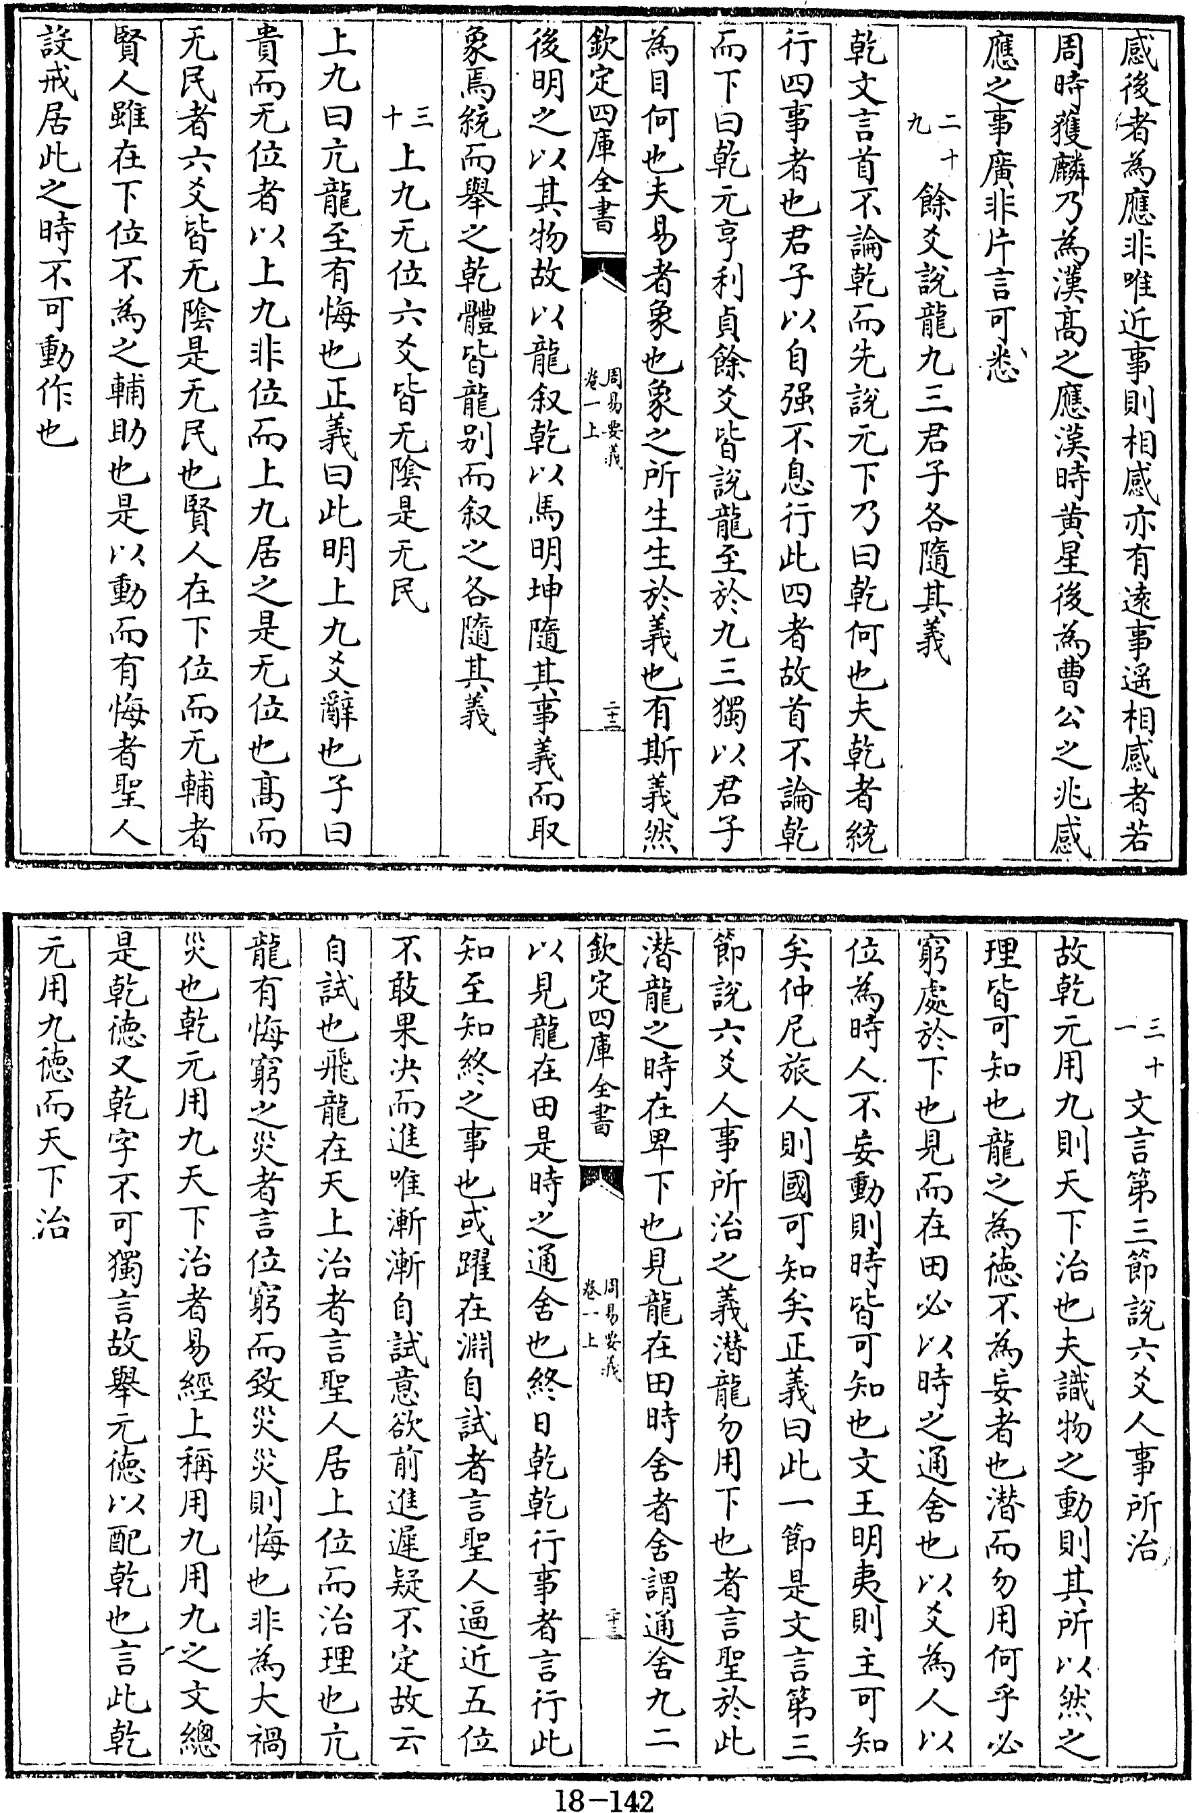 感後者為應非唯近事則相感亦有遠事遥相感者若
周時獲麟乃為漢髙之應漢時黄星後為曹公之兆感
應之事廣非片言可悉
二十九 餘爻説龍九三君子各隨其義
乾文言首不論乾而先説元下乃曰乾何也夫乾者統
行四事者也君子以自强不息行此四者故首不論乾
而下曰乾元亨利貞餘爻皆説龍至於九三獨以君子
為目何也夫易者象也象之所生生於義也有斯義然
欽定四庫全書
周易要義
卷一上
二十三
後明之以其物故以龍叙乾以馬明坤隨其事義而取
象焉統而舉之乾體皆龍别而叙之各隨其義
三十 上九无位六爻皆无陰是无民
上九曰亢龍至有悔也正義曰此明上九爻辭也子曰
貴而无位者以上九非位而上九居之是无位也髙而
无民者六爻皆无陰是无民也賢人在下位而无輔者
賢人雖在下位不為之輔助也是以動而有悔者聖人
設戒居此之時不可動作也
三十一 文言第三節説六爻人事所治
故乾元用九則天下治也夫識物之動則其所以然之
理皆可知也龍之為徳不為妄者也潜而勿用何乎必
窮處於下也見而在田必以時之通舍也以爻為人以
位為時人不妄動則時皆可知也文王明夷則主可知
矣仲尼旅人則國可知矣正義曰此一節是文言第三
節説六爻人事所治之義潜龍勿用下也者言聖於此
潜龍之時在卑下也見龍在田時舍者舍謂通舍九二
欽定四庫全書
周易要義
卷一上
二十三
以見龍在田是時之通舍也終日乾乾行事者言行此
知至知終之事也或躍在淵自試者言聖人逼近五位
不敢果决而進唯漸漸自試意欲前進遲疑不定故云
自試也飛龍在天上治者言聖人居上位而治理也亢
龍有悔窮之災者言位窮而致災災則悔也非為大禍
災也乾元用九天下治者易經上稱用九用九之文總
是乾徳又乾字不可獨言故舉元徳以配乾也言此乾
元用九徳而天下治
18-142